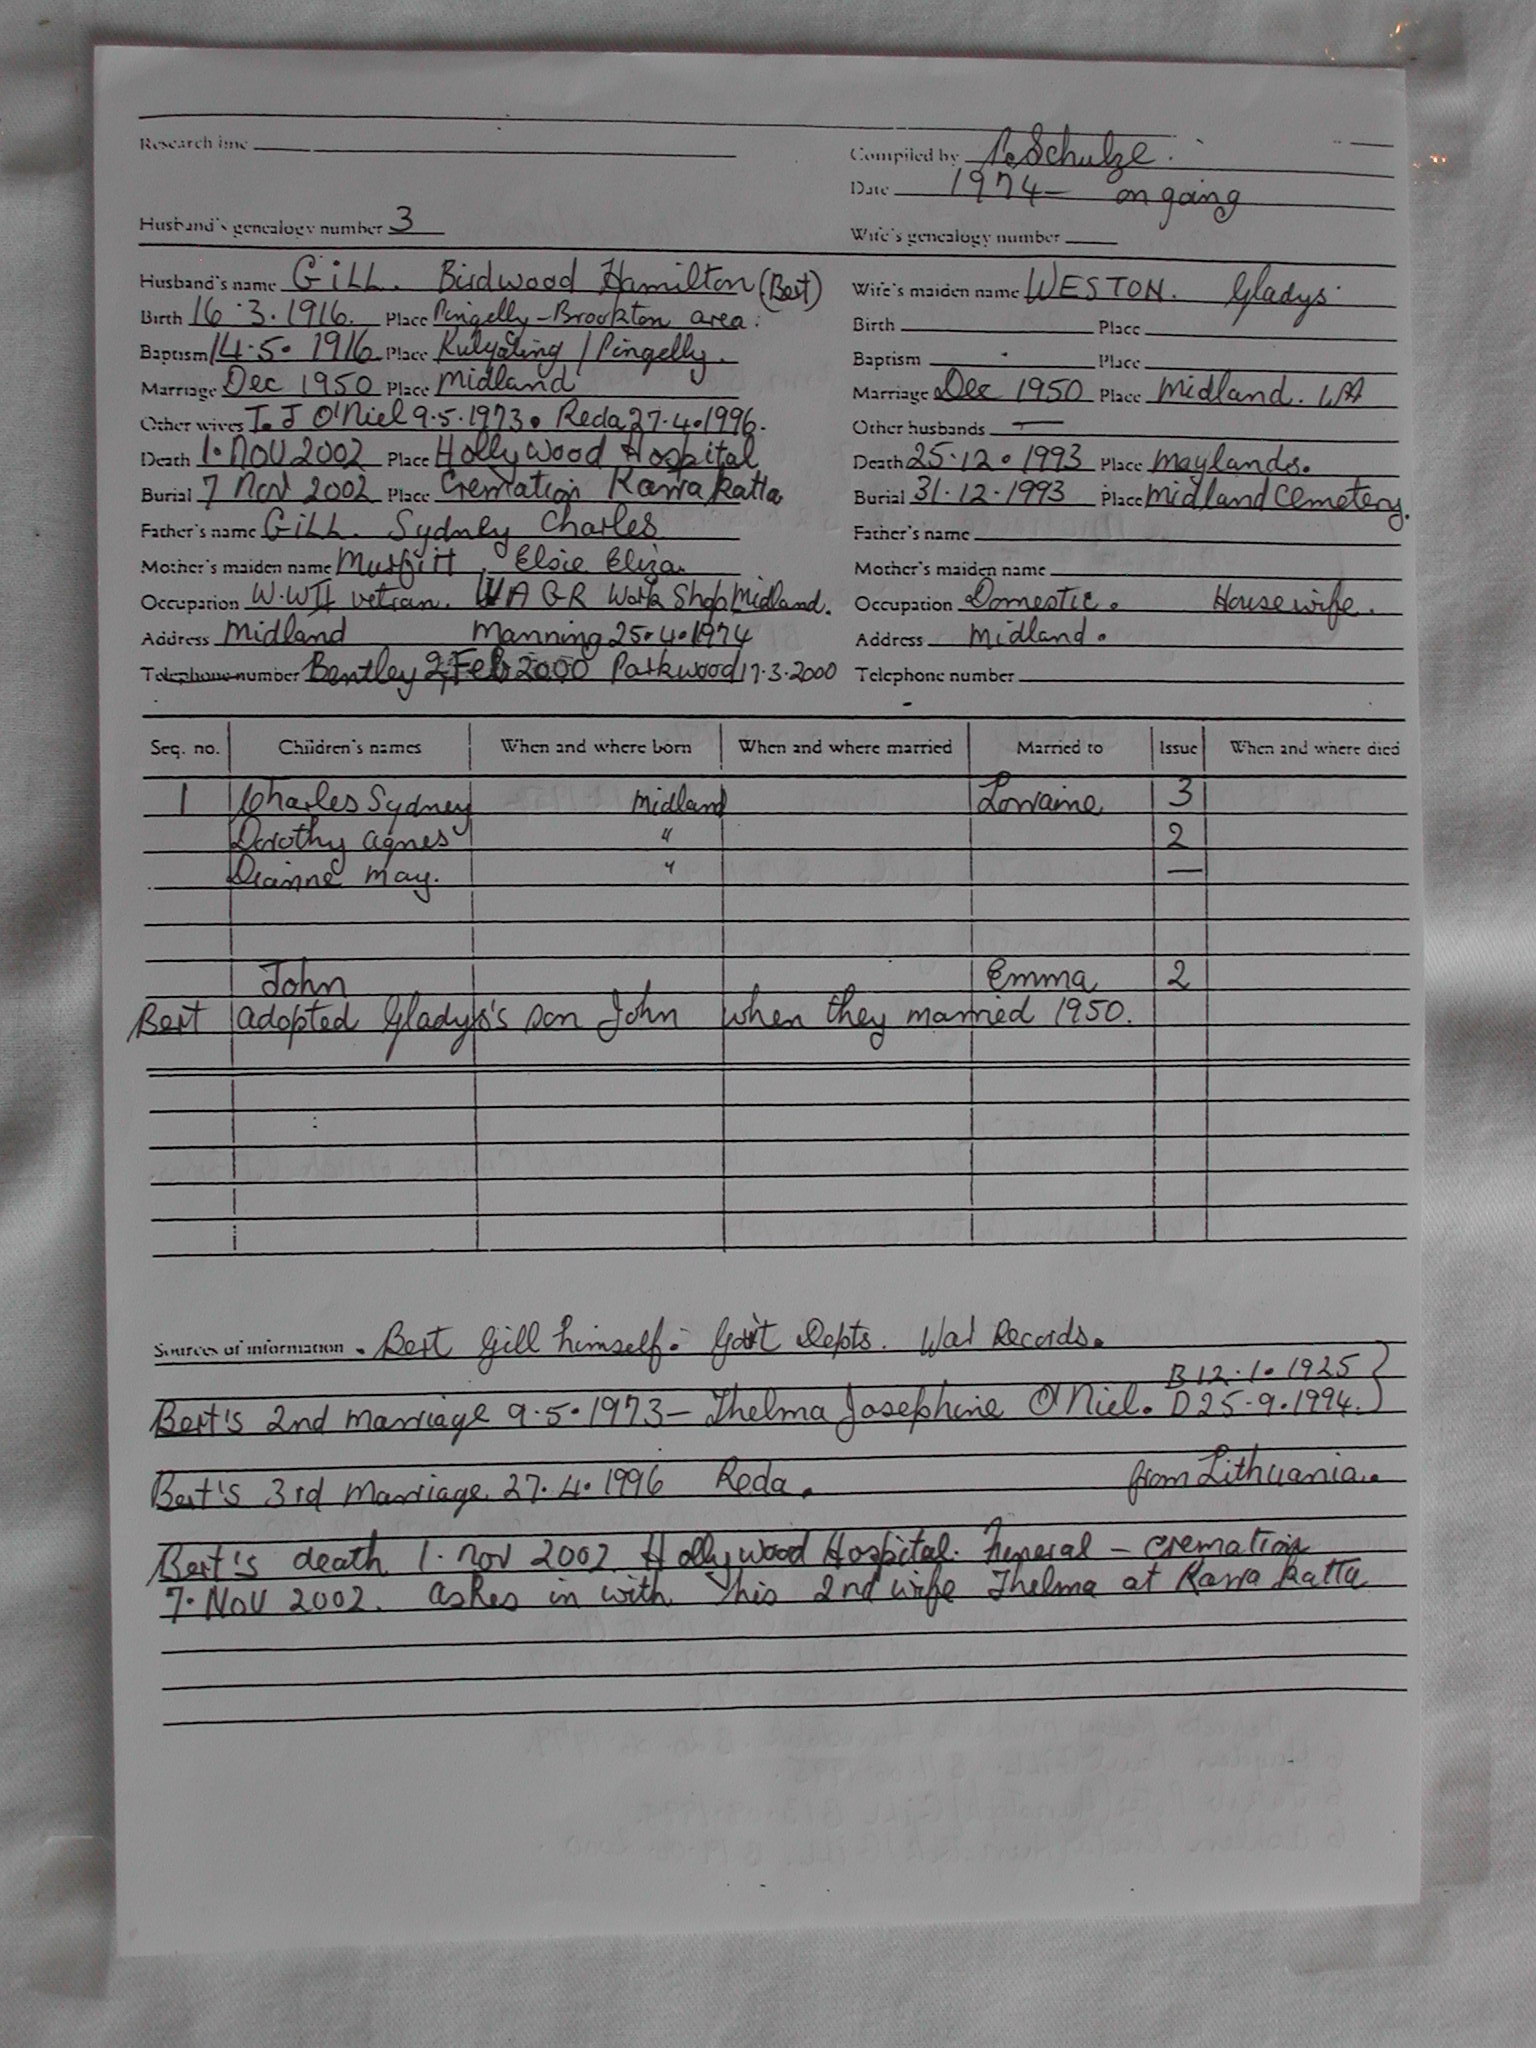 Research line
Compiled by R. Schulze.
Date 1974 - on going
Husband's genealogy number 3
Wife's genealogy number
Husband's name GILL. Birdwood Hamilton (Bert)
Wife's maiden name WESTON. Gladys
Birth 16.3.1916. Place Pingelly-Brookton area.
Birth Place
Baptism 14.5.1916 Place Kulyaling / Pingelly.
Baptism Place
Marriage Dec 1950 Place Midland
Marriage Dec 1950 Place Midland. WA
Other wives T. J O'Niel 9.5.1973. Reda 27.4.1996.
Other husbands —
Death 1. Nov 2002 Place Hollywood Hospital
Death 25.12.1993 Place Maylands.
Burial 7 Nov 2002 Place Cremation Karrakatta
Burial 31.12.1993 Place Midland Cemetery.
Father's name GILL. Sydney Charles
Father's name
Mother's maiden name Murfitt, Elsie Eliza
Mother's maiden name
Occupation W.WII vetran. WAGR Work Shop Midland.
Occupation Domestic. Housewife.
Address Midland Manning 25.4.1974
Address Midland.
Telephone number Bentley 2 Feb 2000 Parkwood 17.3.2000
Telephone number
Seq. no. Children's names When and where born When and where married Married to Issue When and where died
1 Charles Sydney Midland Lorraine 3
Dorothy Agnes " 2
Dianne May. " —
John Emma 2
Bert adopted Gladys's son John when they married 1950.
Sources of information . Bert Gill himself. Gov't Depts. War Records.
B 12.1.1925
Bert's 2nd marriage 9.5.1973 - Thelma Josephine O'Niel. D 25.9.1994.
Bert's 3rd marriage 27.4.1996 Reda. from Lithuania.
Bert's death 1. Nov 2002 Hollywood Hospital. Funeral - cremation
7. Nov 2002. ashes in with his 2nd wife Thelma at Karrakatta